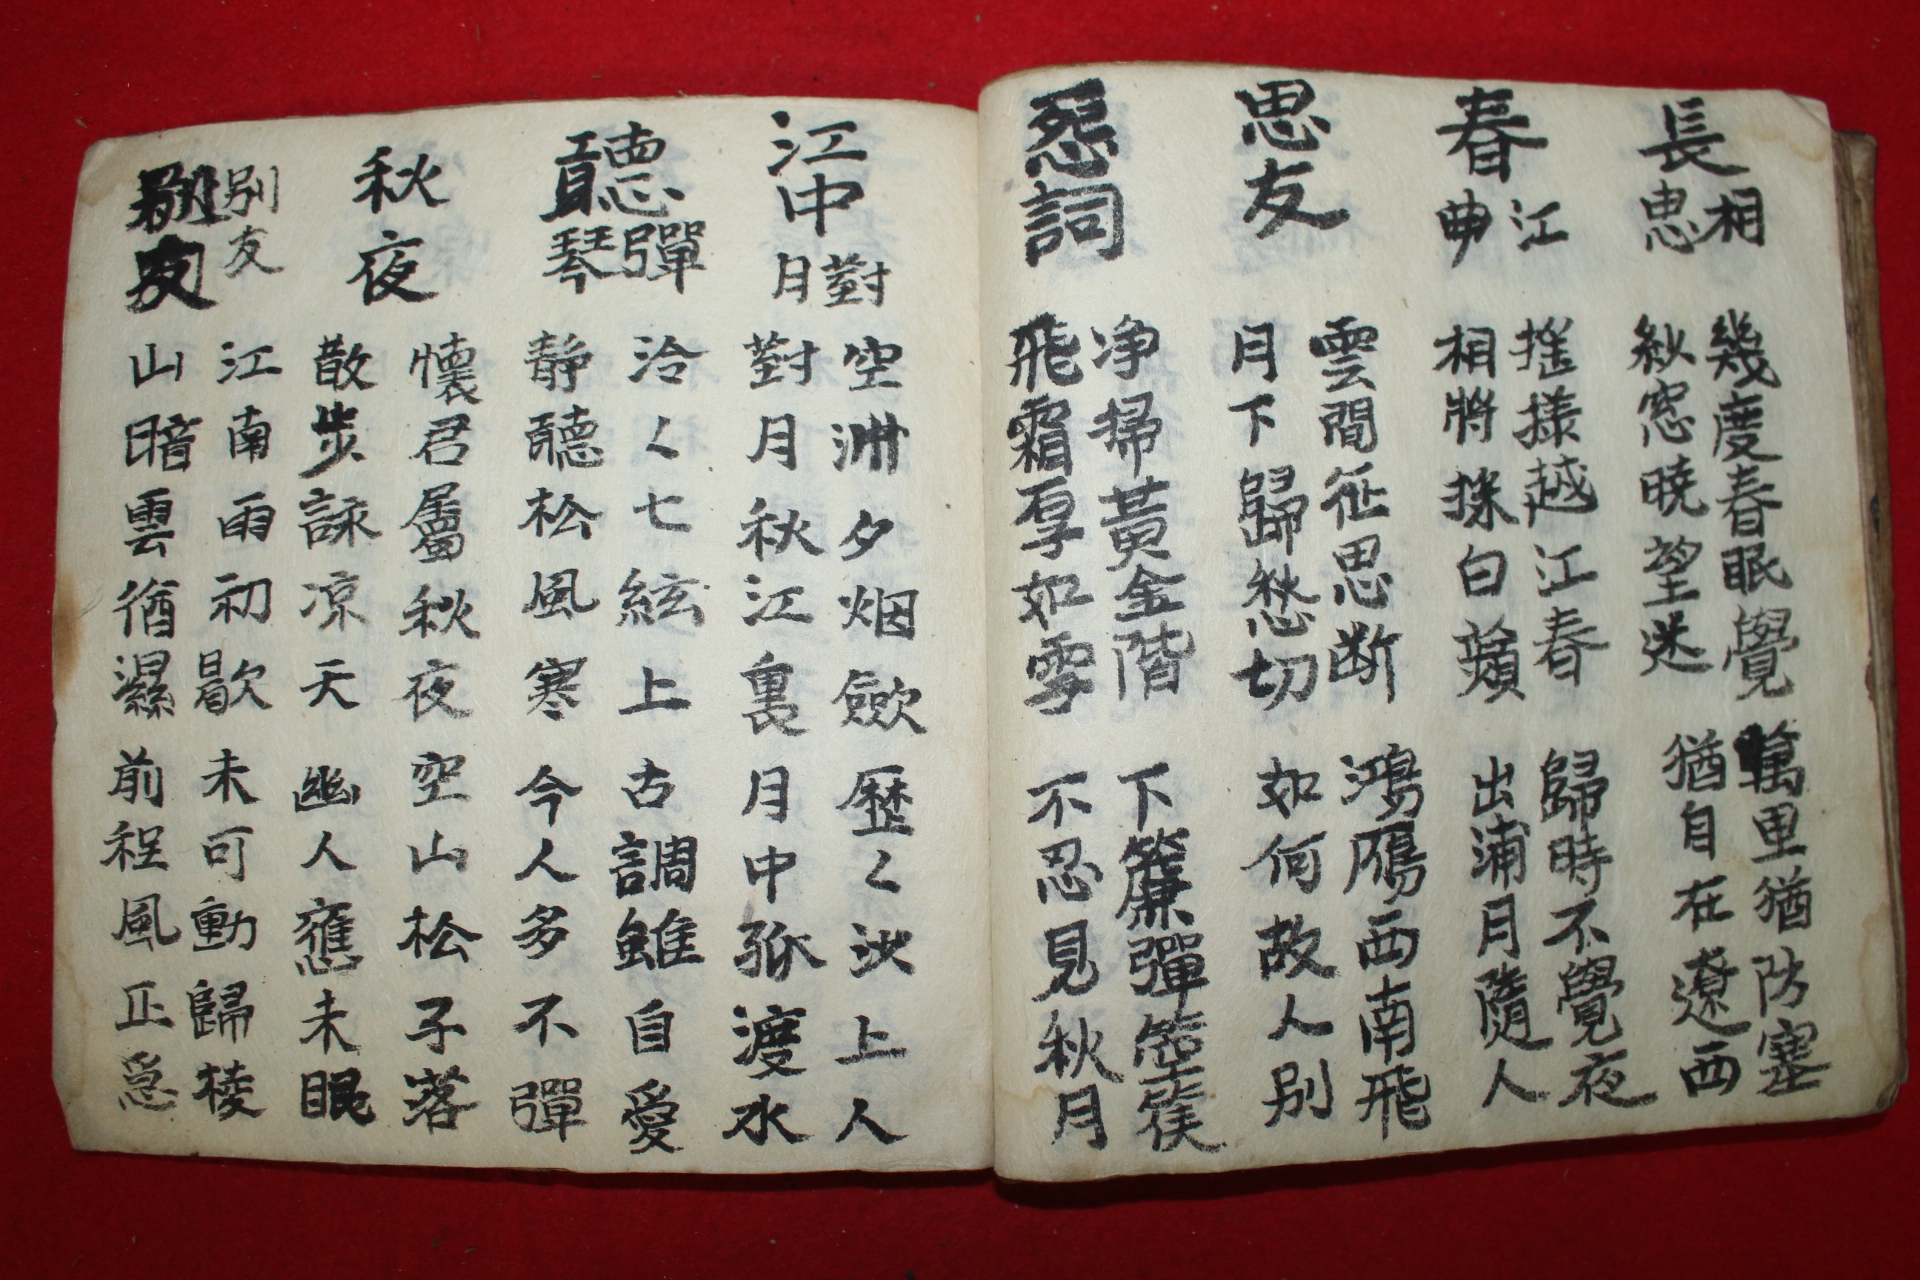 長相思
幾度春眠覺
紗窓曉望迷
萬里猶防塞
猶自在遼西
春江曲
搖樣越江春
相將採白蘋
歸時不覺夜
出浦月隨人
思友
雲間征思断
月下歸愁切
鴻鴈西南飛
如何故人別
怨詞
净掃黃金階
飛霜厚如雪
下簾彈箜篌
不忍見秋月
江中對月
空洲夕烟歛
對月秋江裏
歷〻沙上人
月中孤渡水
聽彈琴
泠〻七絃上
静聽松風寒
古調雖自愛
今人多不彈
秋夜
懷君屬秋夜
散步詠凉天
空山松子落
幽人應未眠
別友
別友
江南雨初歇
山暗雲猶濕
未可動歸棱
前程風正急